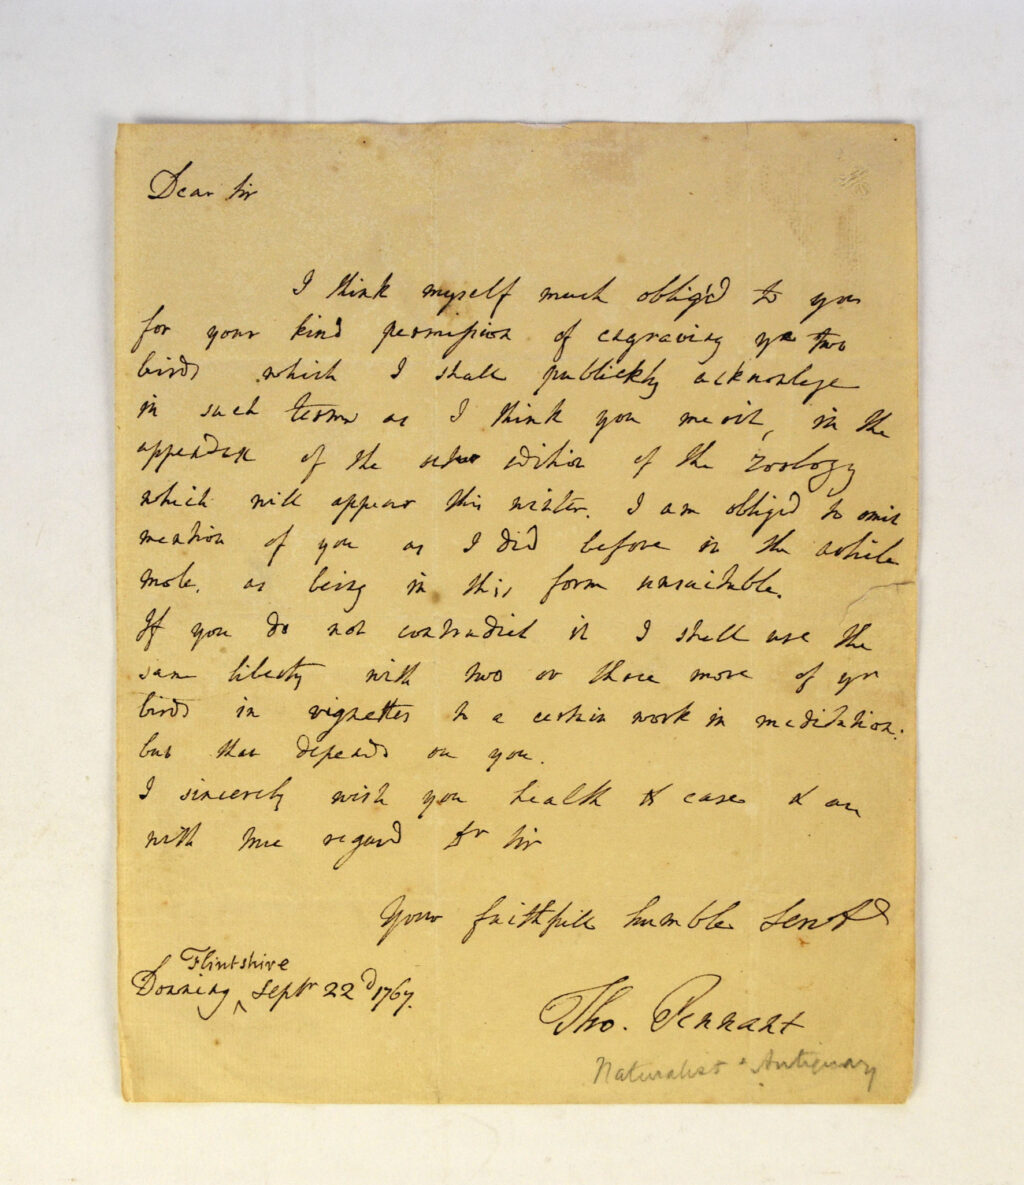 Dear Sir
I think myself much oblig'd to you
for your kind permission of engraving yr two
birds which I shall publickly acknowlege
in such terms as I think you merit, in the
appendix of the edition of the Zoology
which will appear this winter. I am oblig'd to omit
mention of you as I did before in the article
mole. as being in this form unsuitable.
If you do not contradict it I shall use the
same liberty with two or three more of yr
birds in vignettes to a certain work in meditation:
but that depends on you.
I sincerely wish you health & ease & am
with true regard Dr Sir
Your faithfull humble Servt
Flintshire
Downing ^ Septr 22d 1767.
Tho. Pennant
Naturalist & Antiquary